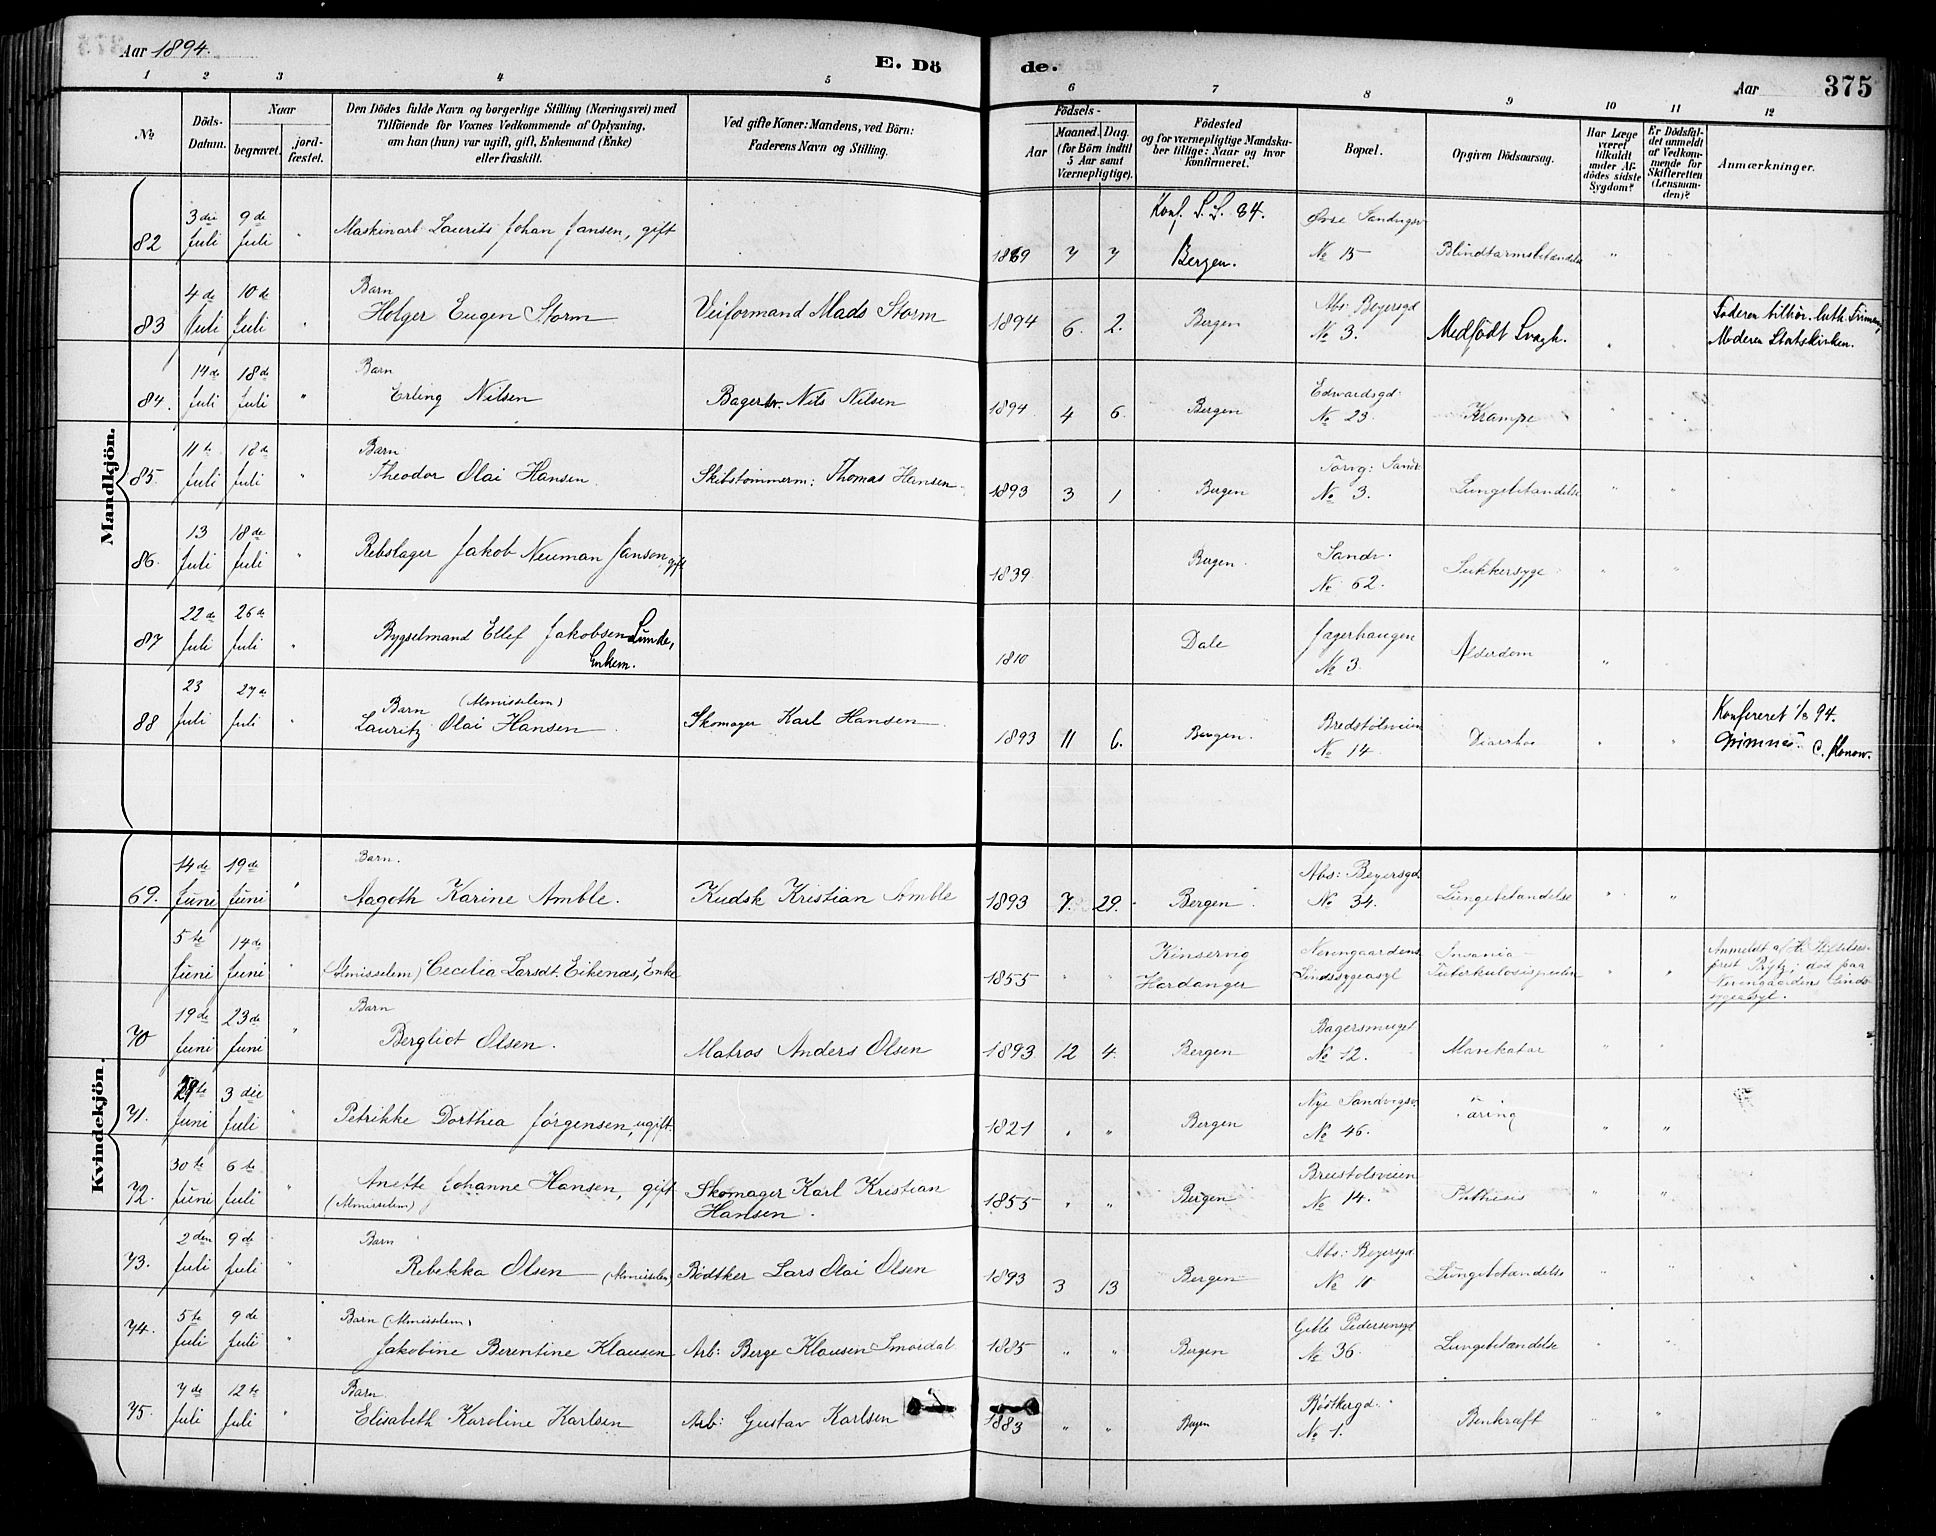 Aar 1894.
E. Dö
de.
Aar
375
1 2 3 4 5 6 7 8 9 10 11 12
No
Döds-Datum.
Naar
begravet.
jord-fæstet.
Den Dödes fulde Navn og borgerlige Stilling (Næringsvei) med
Tilföiende for Voxnes Vedkommende af Oplysning,
om han (hun) var ugift, gift, Enkemand (Enke)
eller fraskilt.
Ved gifte Koner: Mandens, ved Börn:
Faderens Navn og Stilling.
Födsels-
Aar
Maaned.
Dag.
(for Börn indtil
5 Aar samt
Værnepligtige).
Födested
og for værnepligtige Mandska-
ber tillige: Naar og hvor
konfirmeret.
Bopæl.
Opgiven Dödsaarsag.
Har Læge
været
tilkaldt
under Af-
dödes sidste
Sygdom?
Er Dödsfal-
det anmeldt
af Vedkom-
mende for
Skifteretten
(Lensman-
den)?
Anmærkninger.
Mandkjön.
82 3die Juli 9de Juli " Maskinarb. Laurits Johan Jansen, gift 1869 7 7 Konf. S. S. 84. Bergen. Øvre Sandvigsv No 15 Blindtarmsbetændelse "
83 4de Juli 10de Juli " Barn
Holger Eugen Storm Veiformand Mads Storm 1894 6. 2. Bergen Abs: Beyersgd No 3. Medfödt Svagh. " Faderen tilhör. luth.
Moderen Statskirken.
84. 14de Juli 18de Juli " Barn
Erling Nilsen Nils Nilsen 1894 4 6. Bergen Edwardsgd. No 23 Krampe " "
85. 11te Juli 18de Juli " Barn
Theodor Olai Hansen Skibstømmerm: Thomas Hansen 1893 3 1 Bergen No 3. Lungebetændelse " "
86. 13 Juli 18de Juli " Rebslager Jakob Neuman Jansen, gift 1839 Bergen Sandv. No 62. Sukkersyge " "
87 22de Juli 26de Juli " Bygselmand Ellef Jakobsen Lunde,
Enkem. 1810 Dale No 3. Alderdom "
88 23 Juli 27de Juli " Barn (Almisselem)
Lauritz Olai Hansen Skomager Karl Hansen 1893 11 6. Bergen. No 14. Diarrhoe " " Konfereret 1/8 94.
C. Konow.
Kvindekjön.
69. 14de Juni 19de Juni " Barn.
Aagoth Karine Amble. Kudsk Kristian Amble 1893 7. 29. Bergen Abs: Beyersgd No 34. Lungebetændelse " "
5te Juni 14de Juni " (Almisselem) Cecilia Larsdt. Eikenæs, Enke 1855 " " Kinservig Hardanger Neevengaardens Sindssygeasyl Insania " " Anmeldt af
70 19de Juni 23de Juni " Barn
Bergliot Olsen. Matros Anders Olsen 1893 12 4. Bergen Bagersmuget No 12. Mavekatar " "
71. 29te Juni 3die Juli " Petrikke Dorthea Jörgensen, ugift. 1821 " " Bergen Nye Sandvigsv. No 46. Tæring " "
72. 30te Juni 6te Juli " Anette Johanne Hansen, gift
(Almisselem) Skomager Karl Kristian
Hansen. 1855 " " Bergen No 14. Phthisis " "
73. 2den Juli 9de Juli " Barn
Rebekka Olsen (Almisselem) Bödtker Lars Olai Olsen 1893 3 13 Bergen Abs: Beyersgd No 10 Lungebetændelse " "
74. 5te Juli 9de Juli " Barn (Almisselem)
Jakobine Berentine Klausen Arb: Berge Klausen Smördal 1885 " " Bergen Geble Pedersensgd No 36. Lungebetændelse " "
75. 7de Juli 12te Juli " Barn.
Elisabeth Karoline Karlsen Arb: Gustav Karlsen 1883 " " Bergen Bödtkergd. No 1. Benkræft " "